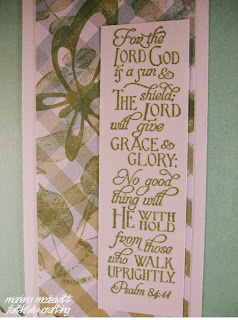 For the
LORD GOD
is a sun &
THE shield;
LORD
will give
GRACE &
GLORY:
No good
thing will
HE WITH
HOLD
from those
who WALK
UPRIGHTLY.
Psalm 84:11
faithfully crafting